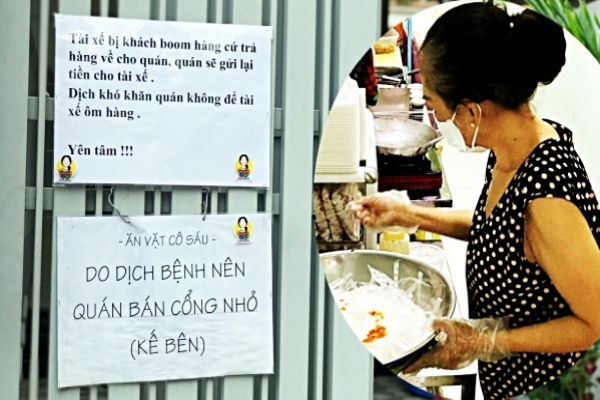 Tài xế bị khách boom hàng cứ trả
hàng về cho quán, quán sẽ gửi lại
tiền cho tài xế .
Dịch khó khăn quán không để tài
xế ôm hàng .
Yên tâm !!!
- ĂN VẶT CÔ SÁU -
DO DỊCH BỆNH NÊN
QUÁN BÁN CỔNG NHỎ
(KẾ BÊN)